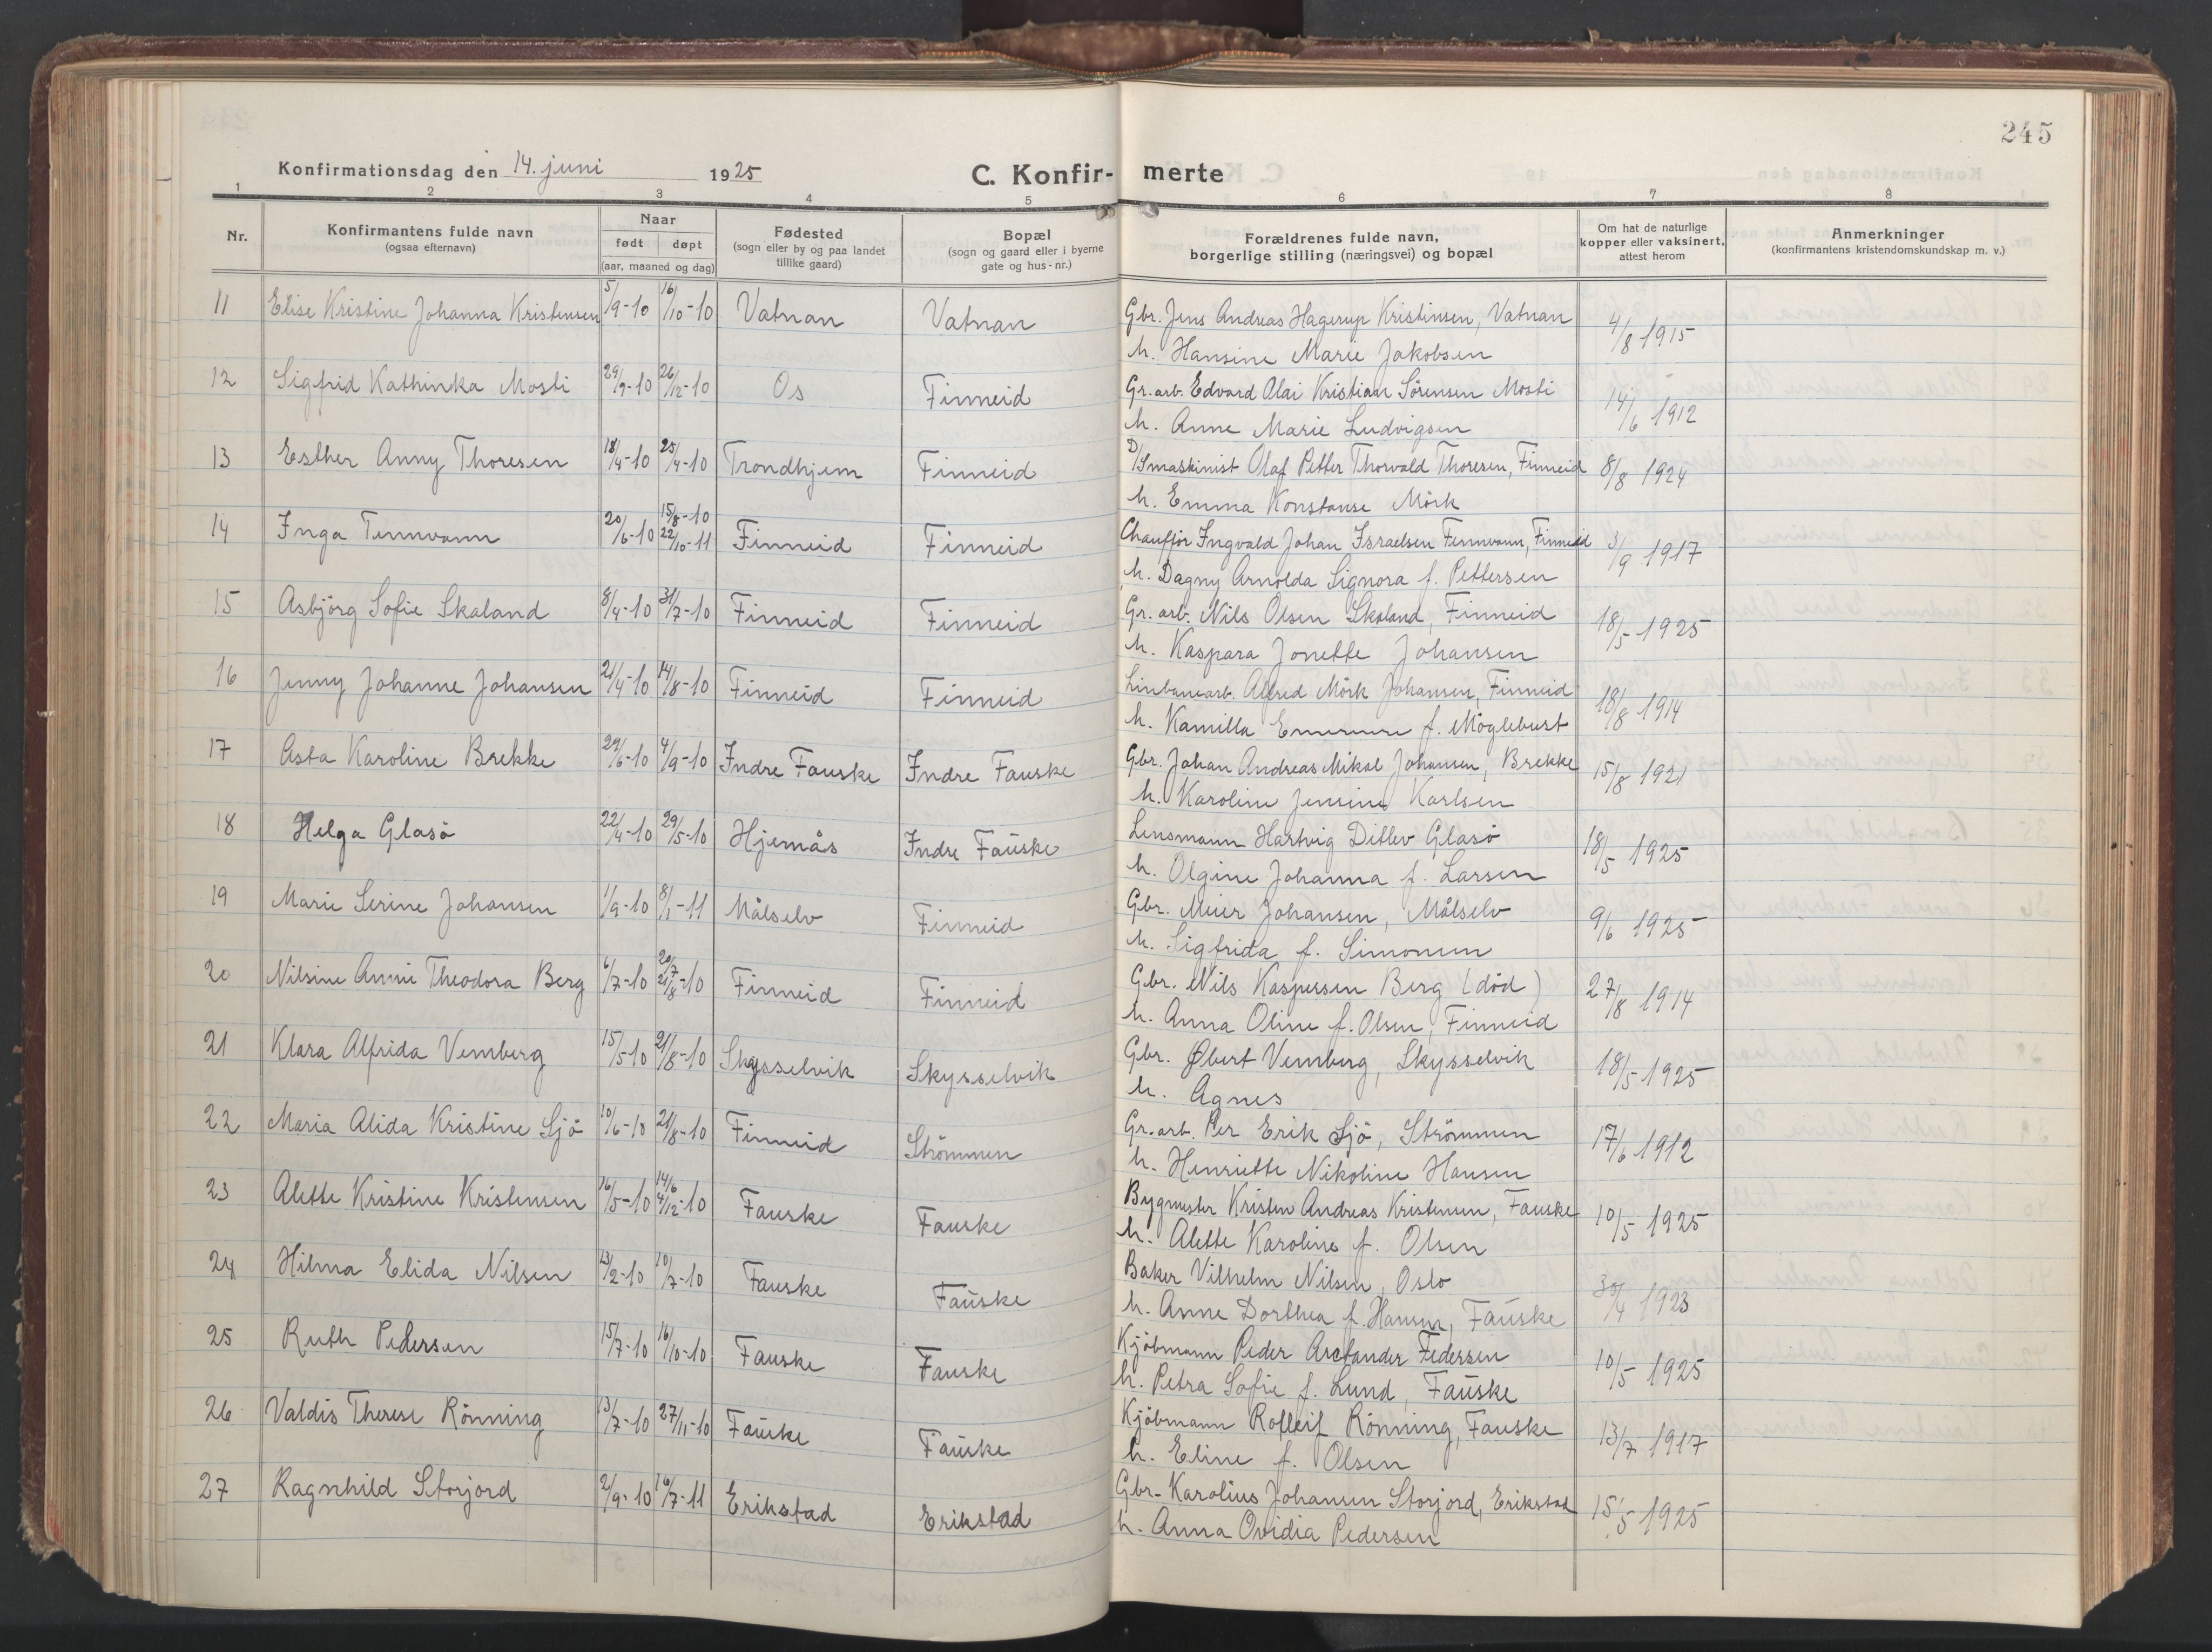 245
Konfirmationsdag den 14. juni 1925 C. Konfir- merte
1 2 3 4 5 6 7 8
Nr.
Konfirmantens fulde navn
(ogsaa efternavn)
Naar
født døpt
(aar, maaned og dag)
Fødested
(sogn eller by og paa landet
tillike gaard)
Bopæl
(sogn og gaard eller i byerne
gate og hus-nr.)
Forældrenes fulde navn,
borgerlige stilling (næringsvei) og bopæl
Om hat de naturlige
kopper eller vaksinert,
attest herom
Anmerkninger
(konfirmantens kristendomskundskap m. v.)
11 Elise Kristine Johanna Kristensen 5/9-10 16/10-10 Vatnan Vatnan Gbr. Jens Andreas Hagerup Kristensen, Vatnan 4/8 1915
h. Hansine Marie Jakobsen
12 Sigfrid Kathinka Mosti 29/9-10 26/12-10 Os Finneid Gr.arb. Edvard Olai Kristian Sörensen Mosti 14/6 1912
h. Anne Marie Ludvigsen
13 Esther Anny Thoresen 18/4-10 25/4-10 Trondhjem Finneid D/Smaskinist Olaf Petter Thorvald Thoresen, Finneid 8/8 1924
h. Emma Konstanse Mörk
14 Inga Tennvann 20/6-10 15/8-10 22/10-11 Finneid Finneid Chauffør Ingvald Johan Israelsen Tennvann, Finneid 3/9 1917
h. Dagny Arnolda Signora f. Pettersen
15 Asbjörg Sofie Skaland 8/4-10 31/7-10 Finneid Finneid Gr. arb. Nils Olsen Skaland, Finneid 18/5-1925
h. Kaspara Jonette Johansen
16 Jenny Johanne Johansen 21/4-10 14/8-10 Finneid Finneid Linbanearb. Alfred Mörk Johansen, Finneid 18/8 1914
h. Kamilla f. Möglebust
17 Asta Karoline Brekke 29/6-10 4/9-10 Indre Fauske Indre Fauske Gbr. Johan Andreas Mikal Johansen, Brekke 15/8 1921
h. Karoline Jensine Karlsen
18 Helga Glasö 22/4-10 29/5-10 Hjemås Indre Fauske Lensmann Hartvig Ditlev Glasö 18/5 1925
h. Olgine Johanna f. Larsen
19 Marie Serine Johansen 1/9-10 8/1-11 Målselv Finneid Gbr. Meier Johansen, Målselv 9/6 1925
h. Sigfrida f. Simonsen
20 Nilsine Anni Theodora Berg 6/7-10 20/7 21/8-10 Finneid Finneid Gbr. Nils Kaspersen Berg (död) 27/8 1914
h. Anna Oline f. Olsen, Finneid
21 Klara Alfrida Vemberg 15/5-10 21/8-10 Skysselvik Skysselvik Gbr. Øbert Vemberg, Skysselvik 18/5-1925
h. Agnes
22 Maria Alida Kristine Sjö 10/6-10 21/8-10 Finneid Strömmen Gr.arb. Per Erik Sjö, Strömmen 17/6 1912
h. Henriette Nikoline Hansen
23 Alette Kristine Kristensen 16/5-10 14/6 4/12-10 Fauske Fauske Bygmester Kristen Andreas Kristensen, Fauske 10/5 1925
h. Alette Karoline f. Olsen
24 Hilma Elida Nilsen 13/2-10 10/7-10 Fauske Fauske Baker Vilhelm Nilsen, Oslo 30/4 1923
h. Anne Dorthea f. Hansen, Fauske
25 Ruth Pedersen 15/7-10 16/10-10 Fauske Fauske Kjöbmann Peder Arctander Pedersen 10/5 1925
h. Petra Sofie f. Lund, Fauske
26 Valdis Therese Rönning 13/7-10 27/11-10 Fauske Fauske Kjöbmann Rolleif Rönning, Fauske 13/7 1917
h. Eline f. Olsen
27 Ragnhild Storjord 2/9-10 16/7-11 Erikstad Erikstad Gbr. Karolius Johansen Storjord, Erikstad 15/5-1925
h. Anna Ovidia Pedersen